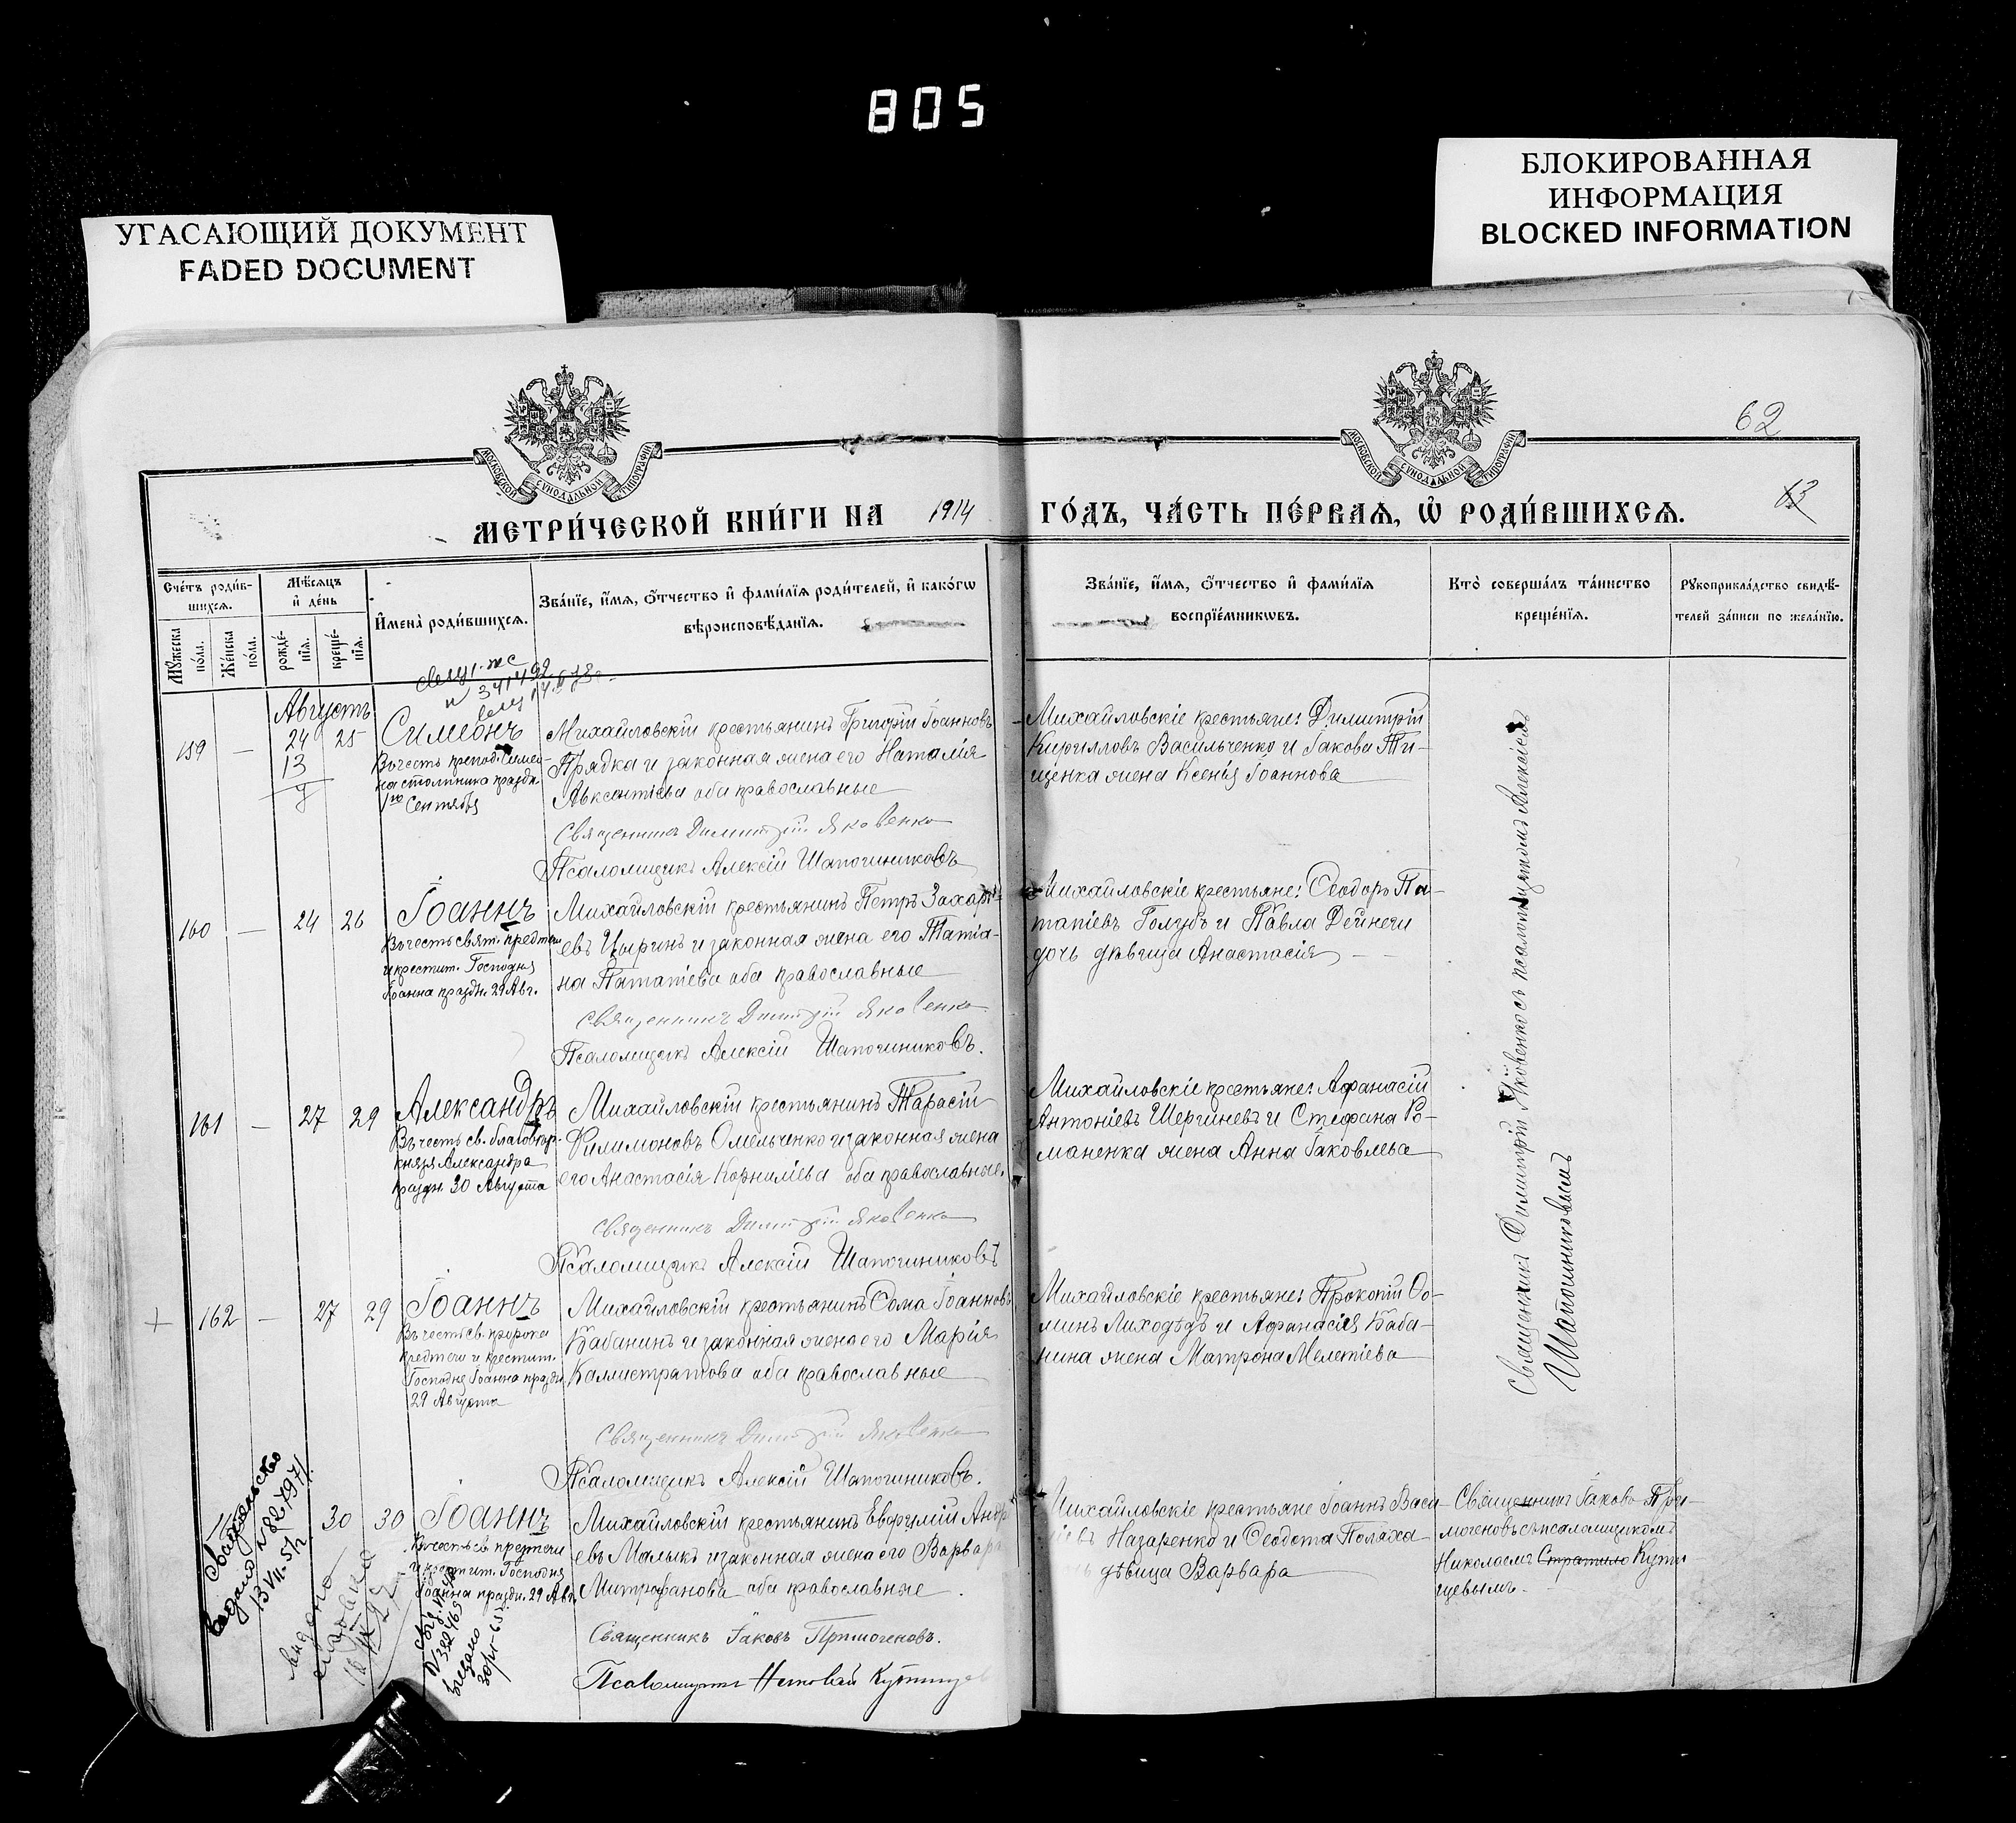 805
УГАСАЮЩИЙ ДОКУМЕНТ
FADED DOCUMENT
БЛОКИРОВАННАЯ
ИНФОРМАЦИЯ
BLOCKED INFORMATION
МОСКОВСКОЙ СѴНОДАЛЬНОЙ ТИПОГРАФІИ
МОСКОВСКОЙ СѴНОДАЛЬНОЙ ТИПОГРАФІИ
62
63
МЕТРИ́ЧЕСКОЙ КНИ́ГИ НА 1914 ГО́ДЪ, ЧА́СТЬ ПЕ́РВАЯ, Ѡ҆ РОДИ́ВШИХСЯ.
Сче́тъ роди́в-
шихся.
Мѣ́сяцъ
и҆ де́нь
Мꙋ́жеска
по́ла.
Же́нска
по́ла.
рожде́-
нїѧ.
креще́-
нїѧ.
И҆мена̀ роди́вшихся.
Зва́нїе, и҆́мѧ, ѻ҆́тчество и҆ фами́лїѧ роди́телей, и҆ како́гѡ
вѣроисповѣ́данїѧ.
Зва́нїе, и҆́мѧ, ѻ҆́тчество и҆ фами́лїѧ
воспрїе́мникѡвъ.
Кто̀ соверша́лъ та́инство
креще́нїѧ.
Рꙋкоприкла́дство свидѣ́-
телей за́писи по жела́нїю.
Августъ
159 — 24 25
13
Симеонъ
Въ честь препод. Симео-
на столпника праздн.
1го Сентября
Михайловскій крестьянинъ Григорій Іоанновъ
Прядка и законная жена его Наталія
Авксентіева оба православные
Священникъ Димитрій Яковенко
Псаломщикъ Алексій Шапочниковъ
Михайловскіе крестьяне: Димитрій
Кирилловъ Васильченко и Іакова Ти-
щенка жена Ксенія Іоаннова
160 — 24 26
Іоаннъ
Въ честь свят. предтечи
и крестит. Господня
Іоанна праздн. 29 Авг.
Михайловскій крестьянинъ Петръ Захарі-
евъ Цыринъ и законная жена его Татіа-
на Ипатіева оба православные
Священникъ Димитрій Яковенко
Псаломщикъ Алексій Шапочниковъ.
Михайловскіе крестьяне: Ѳеодоръ Па-
тапіевъ Голубъ и Павла Дейнеги
дочь дѣвица Анастасія
161 — 27 29
Александръ
Въ честь св. благовѣр.
князя Александра
праздн. 30 Августа
Михайловскій крестьянинъ Тарасій
Филимоновъ Омельченко и законная жена
его Анастасія Корниліева оба православные.
Священникъ Димитрій Яковенко
Псаломщикъ Алексій Шапочниковъ
Михайловскіе крестьяне: Афанасій
Антоніевъ Шергиневъ и Стефана Ро-
маненка жена Анна Іаковлева
+ 162 — 27 29
Іоаннъ
Въ честь св. пророка
предтечи и крестит.
Господня Іоанна праздн.
29 Августа
Михайловскій крестьянинъ Ѳома Іоанновъ
Кабанинъ и законная жена его Марія
Каллистратова оба православные
Священникъ Димитрій Яковенко
Псаломщикъ Алексій Шапочниковъ.
Михайловскіе крестьяне: Прокопій Ѳо-
минъ Лиходѣдъ и Афанасія Каба-
нина жена Матрона Мелетіева
Священникъ Димитрій Яковенко съ псаломщикомъ Алексіемъ
Шапочниковымъ
Свидетельство
13 VII-57г
30 30
Іоаннъ
предтечи
и крестит. Господня
Іоанна праздн. 29 Авг.
Михайловскій крестьянинъ Евфимій Андре
евъ Малыкъ и законная жена его Варвара
Митрофанова оба православные.
Священникъ Іаковъ Примогеновъ.
Псаломщикъ Николай
Михайловскіе крестьяне Іоаннъ Васи-
Назаренко и Ѳеодота Поляха
дѣвица Варвара
Священникъ Іаковъ При-
могеновъ съ псаломщикомъ
Николаемъ